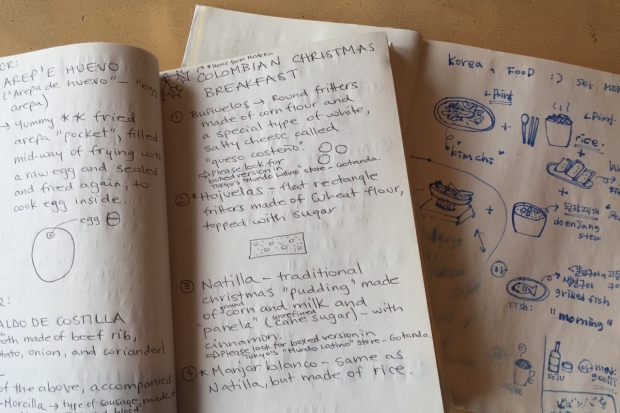 AREP'E HUEVO
("Arepa de huevo" – "egg
arepa)
→ Yummy ** fried
arepa "pocket", filled
mid-way of frying with
a raw egg and sealed
and fried again, to
cook egg inside.
egg
ALDO DE COSTILLA
made of beef rib,
onion, and coriander)
of the above, accompanied
Morcilla → type of sausage, made
COLOMBIAN CHRISTMAS
BREAKFAST
① Buñuelos → Round fritters
made of corn flour and
a special type of white,
salty cheese called
"queso costeño".
⇨ Please look for
boxed version in
Tokyo's "Mundo Latino" store – Gotanda.
② * Hojuelas – flat rectangle
fritters made of wheat flour,
topped with sugar
③ Natilla – traditional
christmas "pudding" made
of ground corn and milk and
"panela" (unrefined cane sugar) – with
cinnamon.
⇨ Please look for boxed version in
Tokyo's "Mundo Latino" store – Gotanda.
④ * Manjar blanco – same as
Natilla, but made of rice.
Korean Food :) Set
point
+
point
rice:
+
"kimchi"
+
된장찌개
doenjang
stew
grilled fish
fish:
"morning"
soju